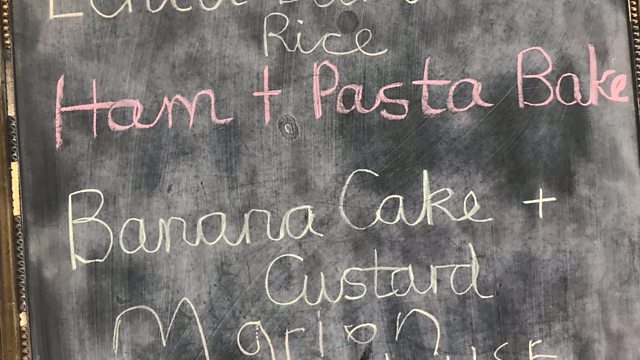 Rice
Ham + Pasta Bake
Banana Cake +
Custard
Marion